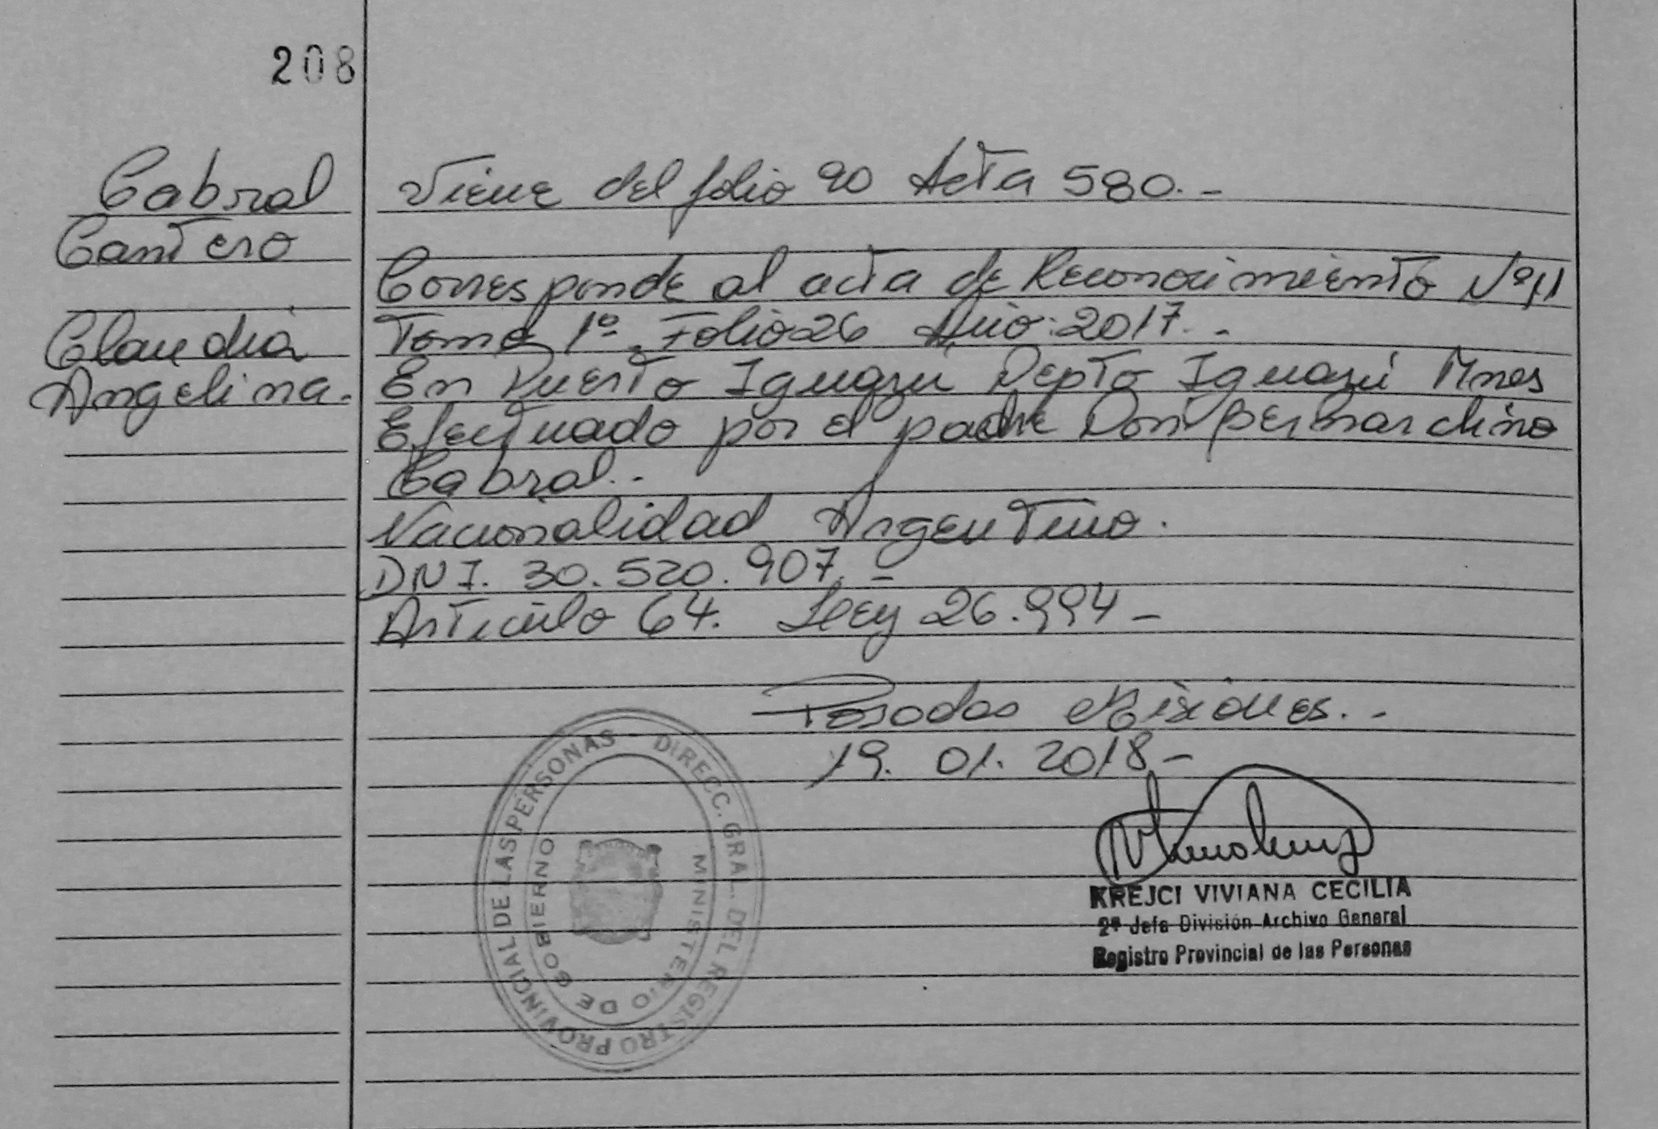 208
Cabral
Cantero
Claudia
Angelina.
Viene del folio 90 Acta 580.-
Corresponde al acta de Reconocimiento Nº 11
Tomo 1º Folio 26 Año: 2017.-
En Puerto Iguazú Depto Iguazú Mnes
Efectuado por el padre Don
Cabral.-
Nacionalidad Argentino.
DNI. 30.520.907.-
Artículo 64. Ley 26.994-
Posadas Misiones.-
19. 01. 2018-
KREJCI VIVIANA CECILIA
2ª Jefa División Archivo General
Registro Provincial de las Personas
DIRECC. GRAL. DEL REGISTRO PROVINCIAL DE LAS PERSONAS
MINISTERIO DE GOBIERNO